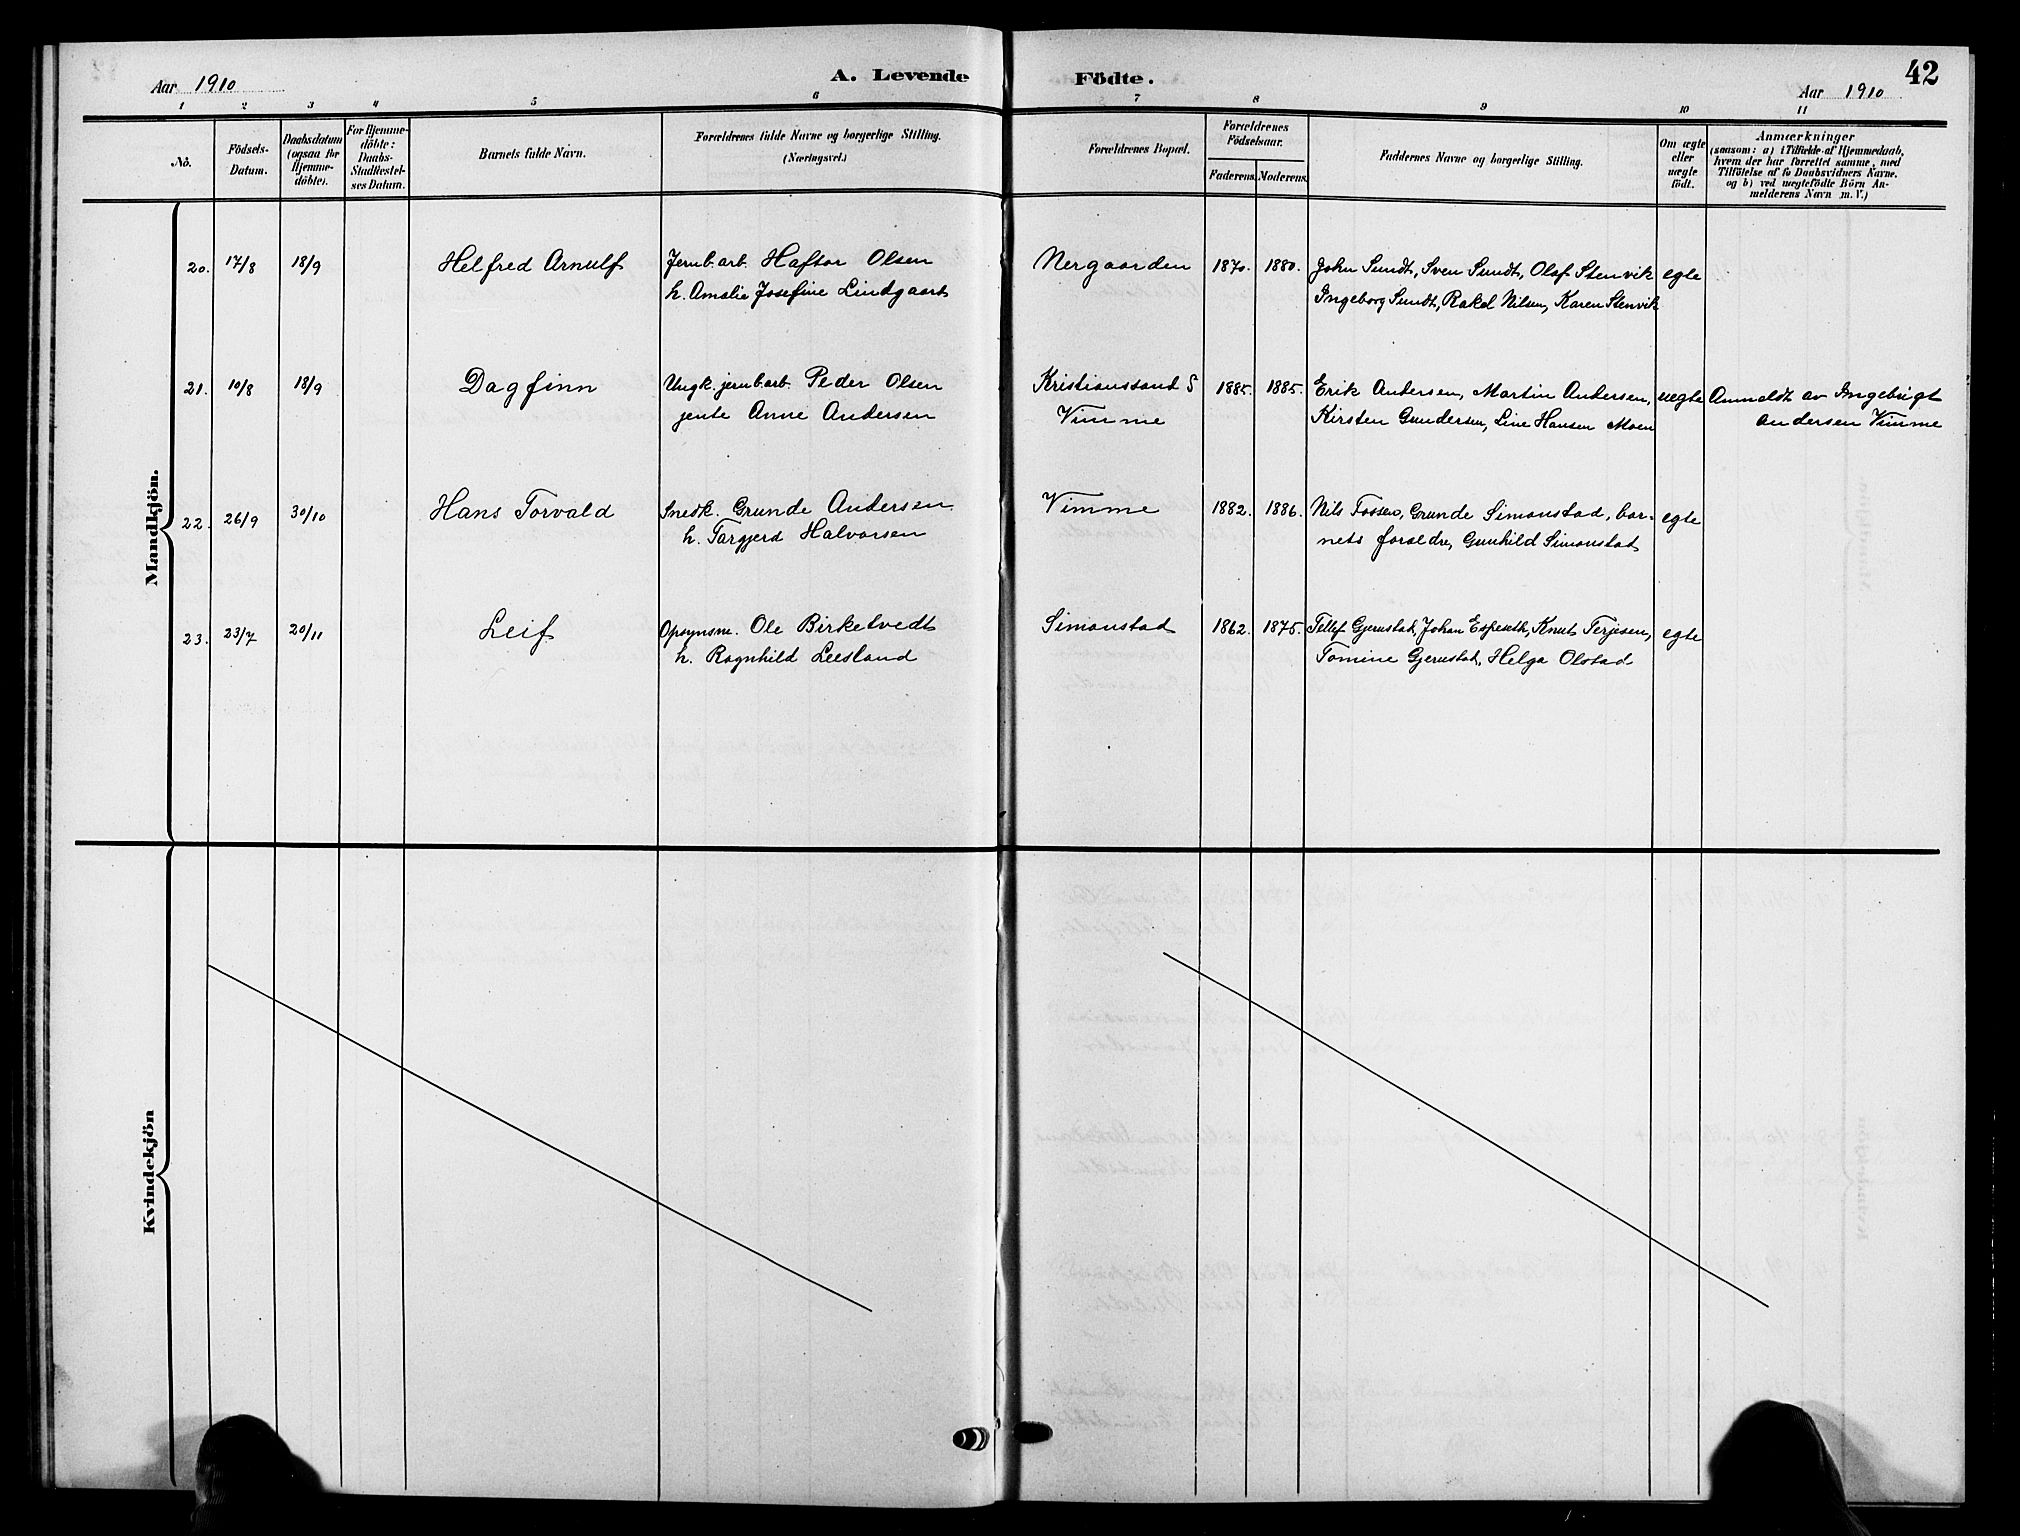 Aar 1910
A. Levende Födte.
42
Aar 1910
1 2 3 4 5 6 7 8 9 10 11
No.
Födsels-Datum.
Daabsdatum (ogsaa for Hjemme-döbte).
For Hjemme-döbte: Daabs-Stadfæstel-ses Datum.
Barnets fulde Navn.
Forældrenes fulde Navne og borgerlige Stilling.
(Næringsvei.)
Forældrenes Bopæl.
Forældrenes Födselsaar.
Faderens. Moderens.
Faddernes Navne og borgerlige Stilling.
Om ægte eller uægte födt.
Anmærkninger
(saasom: a) i Tilfælde af Hjemmedaab,
hvem der har forrettet samme, med
Tilföielse af to Daabsvidners Navne.
og b) ved uægtefödte Börn An-
melderens Navn m. V.)
Mandkjön.
20. 17/8 18/9 Helfred Arnulf Jernb.arb. Haftor Olsen Nergaarden 1870. 1880. John Sundt, Sven Sundt, Olaf Stenvik egte
h. Amalie Josefine Lindgaart Ingeborg Sundt, Rakel Nilsen, Karen Stenvik
21. 10/8 18/9 Dagfinn Ungk. jernb.arb. Peder Olsen Kristianssand S 1885. 1885. Erik Andersen, Martin Andersen, uegte Anmeldt av Ingebrigt
jente Anne Andersen Vimme Kirsten Gundersen, Line Hansen Moen Andersen Vimme
22. 26/9 30/10 Hans Torvald Snedk. Grunde Andersen Vimme 1882. 1886. Nils Fosse, Grunde Simonstad, bar- egte
h. Targjerd Halvorsen nets foreldre, Gunhild Simonstad
23. 23/7 20/11 Leif Opsynsm. Ole Birketvedt Simonstad 1862. 1875. Tellef Gjerustad, Johan Espeseth, Knut Terjesen, egte
h. Ragnhild Leesland Tomine Gjerustad, Helga Olstad
Kvindekjön